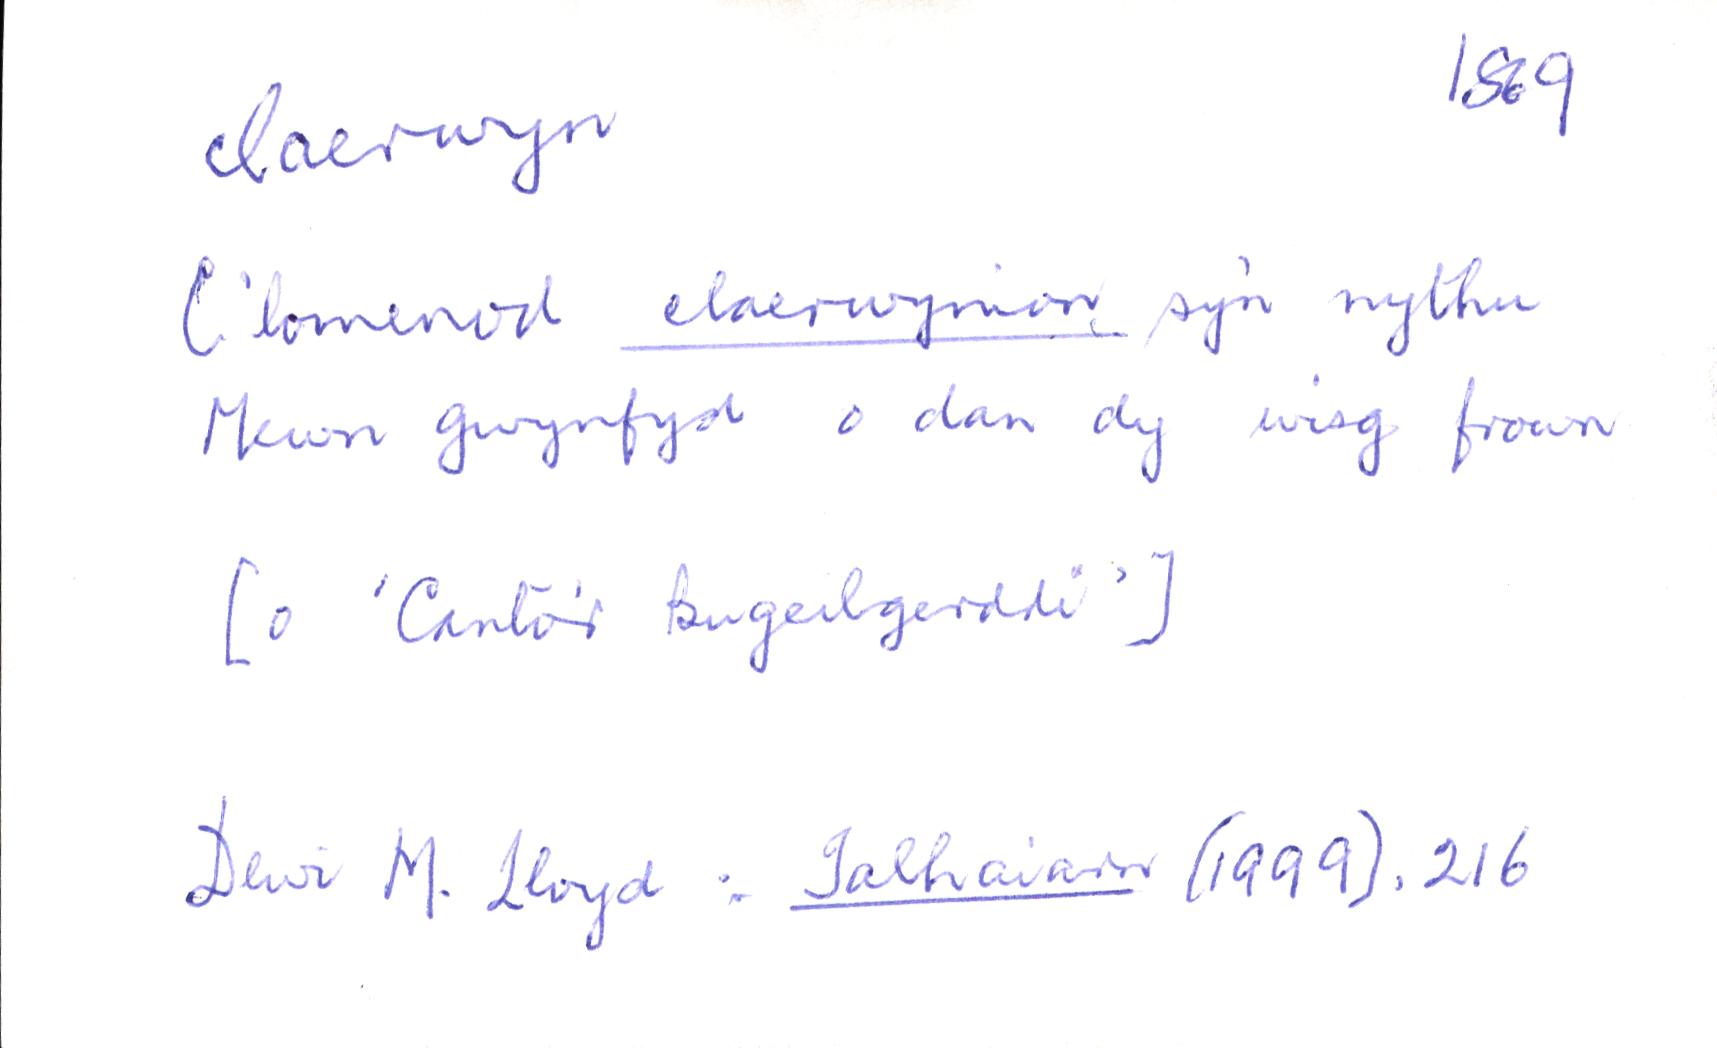 claerwyn 1869
C'lomenod claerwynion sy'n nythu
Mewn gwynfyd o dan dy wisg frown
[o 'Cantō'r Bugeilgerddi']
Dewi M. Lloyd : Talhaiarn (1999), 216